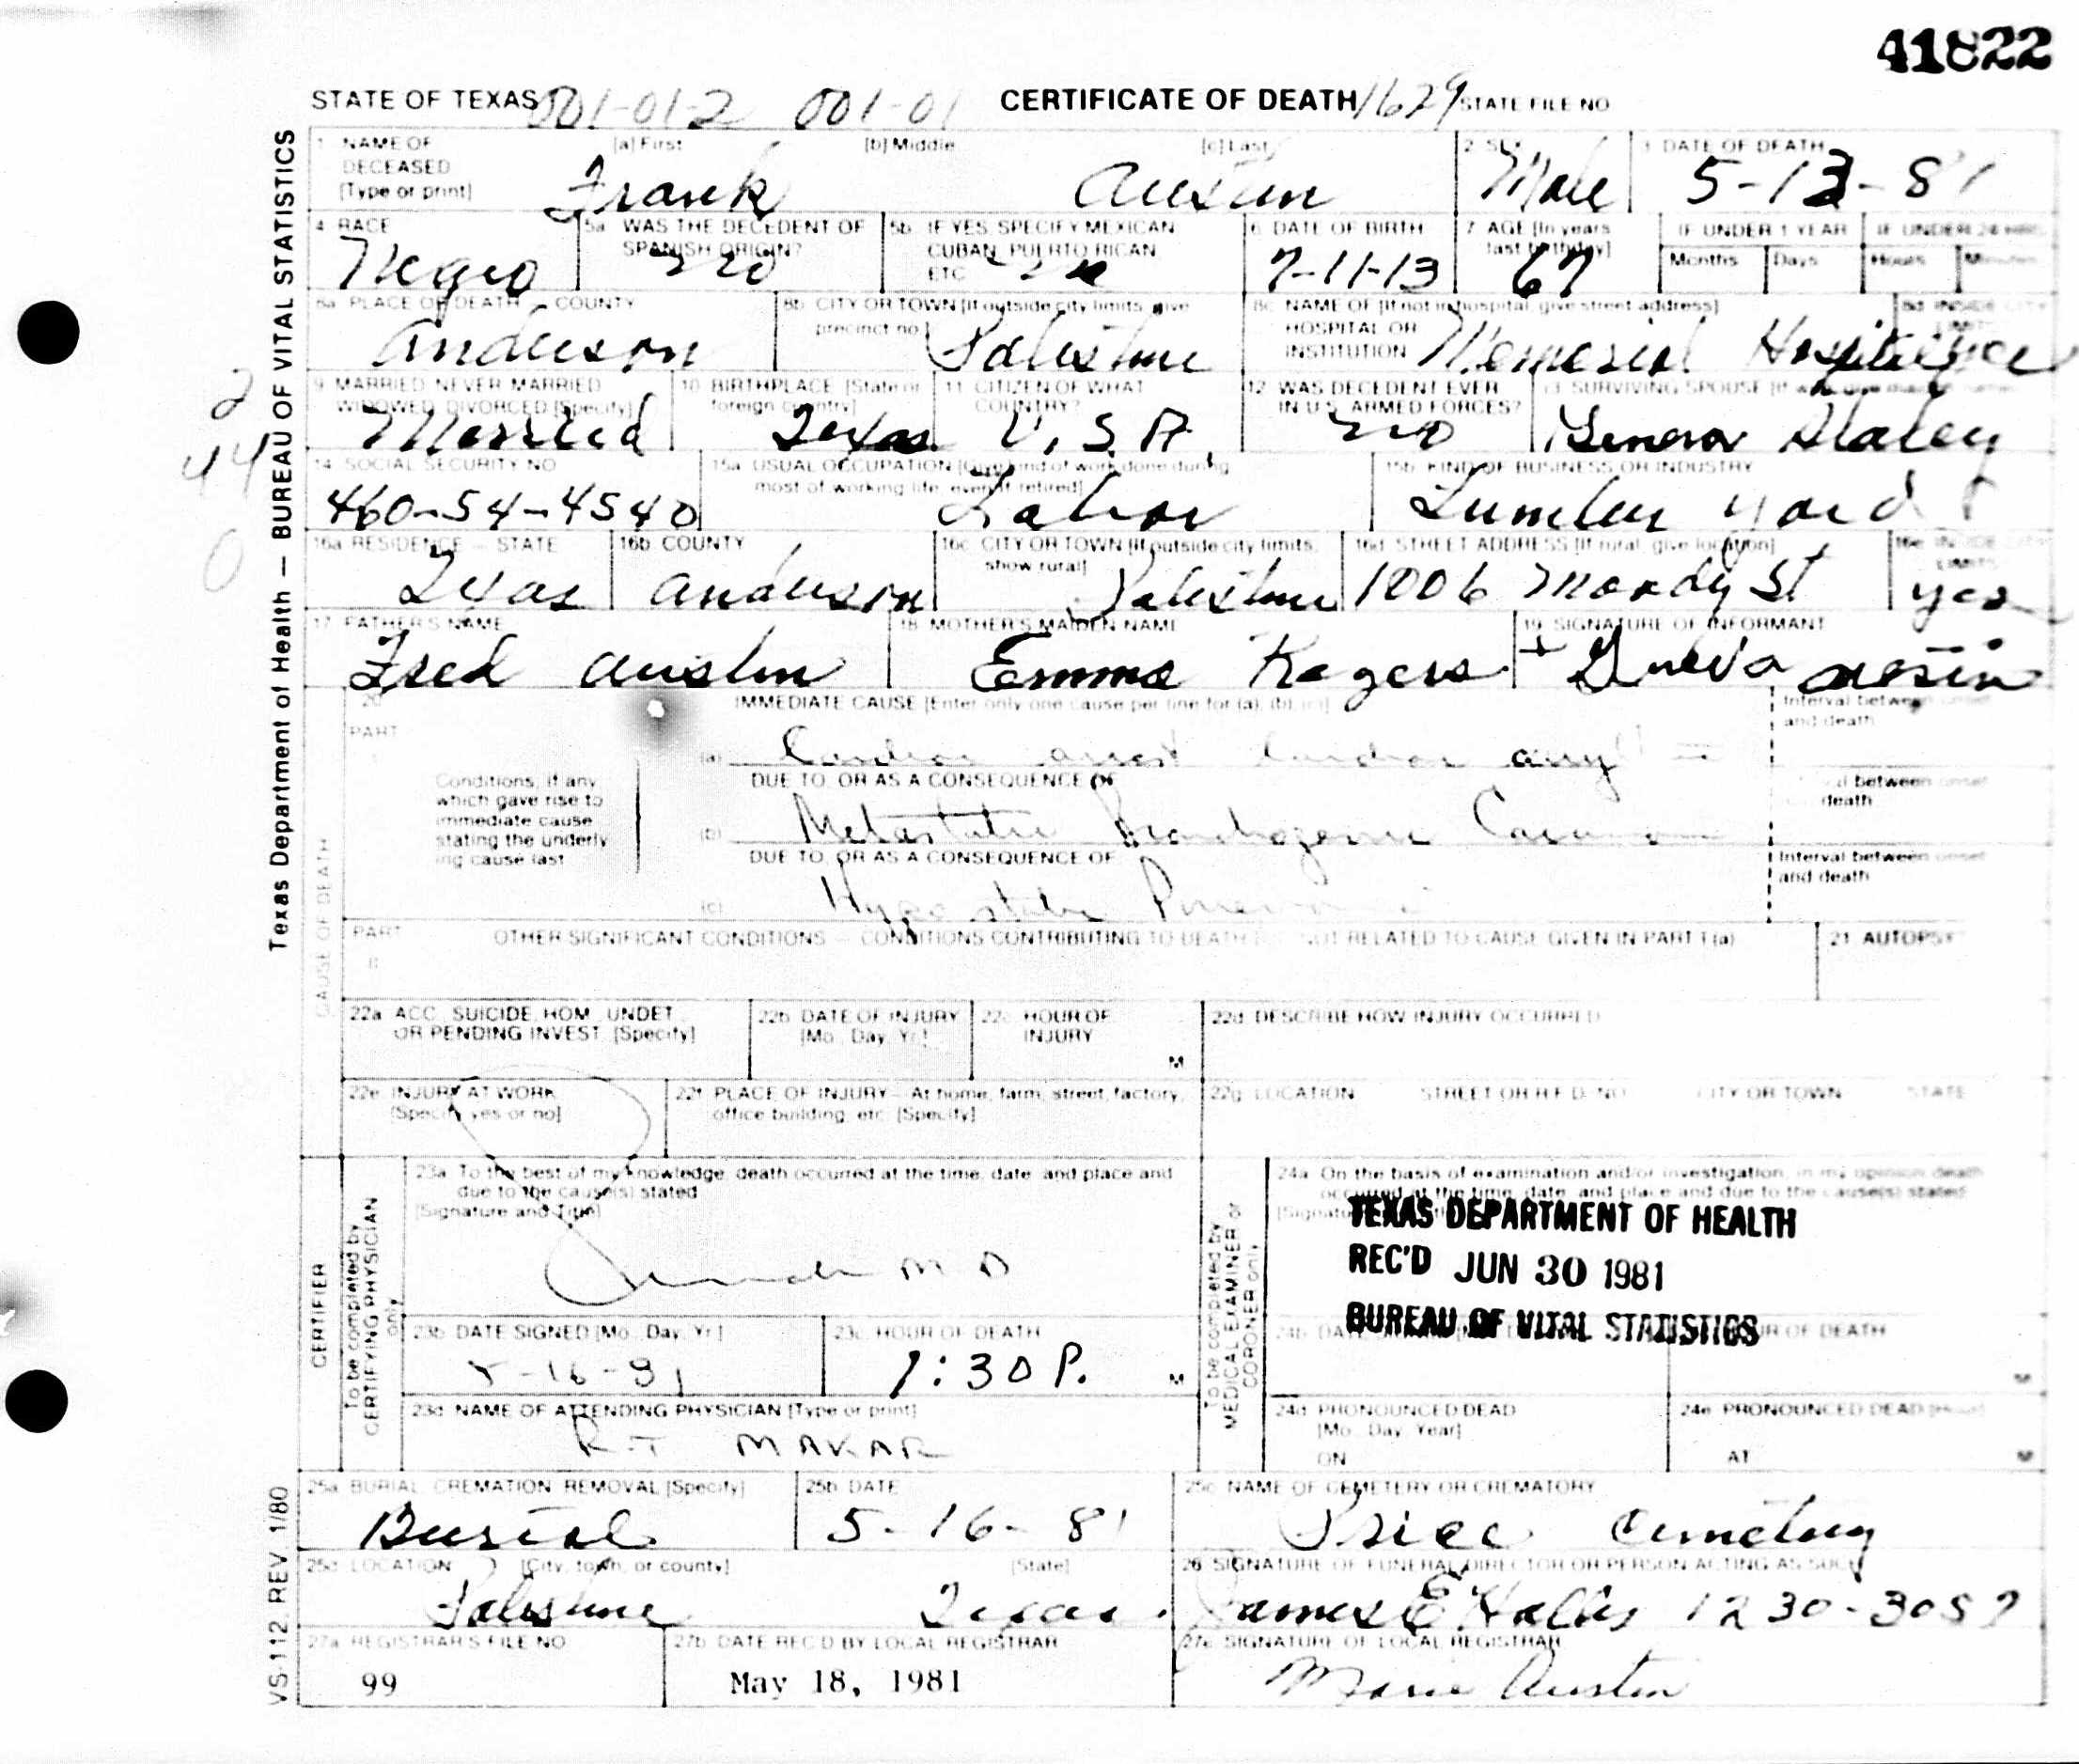 41822
STATE OF TEXAS 001-01-2 001-01 CERTIFICATE OF DEATH 1629 STATE FILE NO
Texas Department of Health — BUREAU OF VITAL STATISTICS
1 NAME OF DECEASED [Type or print] [a] First [b] Middle [c] Last
Frank Austin
2 SEX
Male
3 DATE OF DEATH
5-13-81
4 RACE
Negro
5a WAS THE DECEDENT OF SPANISH ORIGIN?
no
5b IF YES, SPECIFY MEXICAN, CUBAN, PUERTO RICAN, ETC
6 DATE OF BIRTH
7-11-13
7 AGE [In years last birthday]
67
IF UNDER 1 YEAR
Months Days
IF UNDER 24 HRS
Hours Minutes
8a PLACE OF DEATH — COUNTY
Anderson
8b CITY OR TOWN [If outside city limits, give precinct no.]
Palestine
8c NAME OF [If not in hospital, give street address] HOSPITAL OR INSTITUTION
Memorial Hospital
8d INSIDE CITY LIMITS
yes
2
44
0
9 MARRIED, NEVER MARRIED, WIDOWED, DIVORCED [Specify]
Married
10 BIRTHPLACE [State or foreign country]
Texas
11 CITIZEN OF WHAT COUNTRY?
U.S.A.
12 WAS DECEDENT EVER IN U.S. ARMED FORCES?
no
13 SURVIVING SPOUSE
Staley
14 SOCIAL SECURITY NO
460-54-4540
15a USUAL OCCUPATION [Give kind of work done during most of working life, even if retired]
Labor
15b KIND OF BUSINESS OR INDUSTRY
Lumber yard
16a RESIDENCE — STATE
Texas
16b COUNTY
Anderson
16c CITY OR TOWN [If outside city limits, show rural]
Palestine
16d STREET ADDRESS [If rural, give location]
1006 Moody St
16e INSIDE CITY LIMITS
yes
17 FATHER'S NAME
Fred Austin
18 MOTHER'S MAIDEN NAME
Emma Rogers
19 SIGNATURE OF INFORMANT
Austin
CAUSE OF DEATH
20 PART I
IMMEDIATE CAUSE [Enter only one cause per line for (a), (b), (c)]
Interval between onset and death
(a) Cardiac arrest
Conditions, if any which gave rise to immediate cause stating the underlying cause last
DUE TO, OR AS A CONSEQUENCE OF
Interval between onset and death
(b) Metastatic Bronchogenic Carcinoma
DUE TO, OR AS A CONSEQUENCE OF
Interval between onset and death
(c) Hypostatic Pneumonia
PART II
OTHER SIGNIFICANT CONDITIONS — CONDITIONS CONTRIBUTING TO DEATH BUT NOT RELATED TO CAUSE GIVEN IN PART I (a)
21 AUTOPSY
22a ACC, SUICIDE, HOM, UNDET, OR PENDING INVEST. [Specify]
22b DATE OF INJURY [Mo, Day, Yr]
22c HOUR OF INJURY
M
22d DESCRIBE HOW INJURY OCCURRED
22e INJURY AT WORK [Specify yes or no]
22f PLACE OF INJURY — At home, farm, street, factory, office building, etc. [Specify]
22g LOCATION STREET OR R.F.D. NO CITY OR TOWN STATE
CERTIFIER
To be completed by CERTIFYING PHYSICIAN only
23a To the best of my knowledge, death occurred at the time, date, and place and due to the cause(s) stated
[Signature and Title]
M D
23b DATE SIGNED [Mo, Day, Yr]
5-16-81
23c HOUR OF DEATH
1:30 P. M
23d NAME OF ATTENDING PHYSICIAN [Type or print]
R.T MAKAR
To be completed by MEDICAL EXAMINER or CORONER only
24a On the basis of examination and/or investigation, in my opinion death occurred at the time, date, and place and due to the cause(s) stated
TEXAS DEPARTMENT OF HEALTH
REC'D JUN 30 1981
BUREAU OF VITAL STATISTICS
HOUR OF DEATH
M
24d PRONOUNCED DEAD [Mo, Day, Year]
ON
24e PRONOUNCED DEAD [Hour]
AT M
25a BURIAL, CREMATION, REMOVAL [Specify]
Burial
25b DATE
5-16-81
25c NAME OF CEMETERY OR CREMATORY
Price Cemetery
25d LOCATION [City, town, or county] [State]
Palestine Texas
26 SIGNATURE OF FUNERAL DIRECTOR OR PERSON ACTING AS SUCH
James E
27a REGISTRAR'S FILE NO
99
27b DATE REC'D BY LOCAL REGISTRAR
May 18, 1981
27c SIGNATURE OF LOCAL REGISTRAR
Marie Austin
VS-112, REV. 1/80